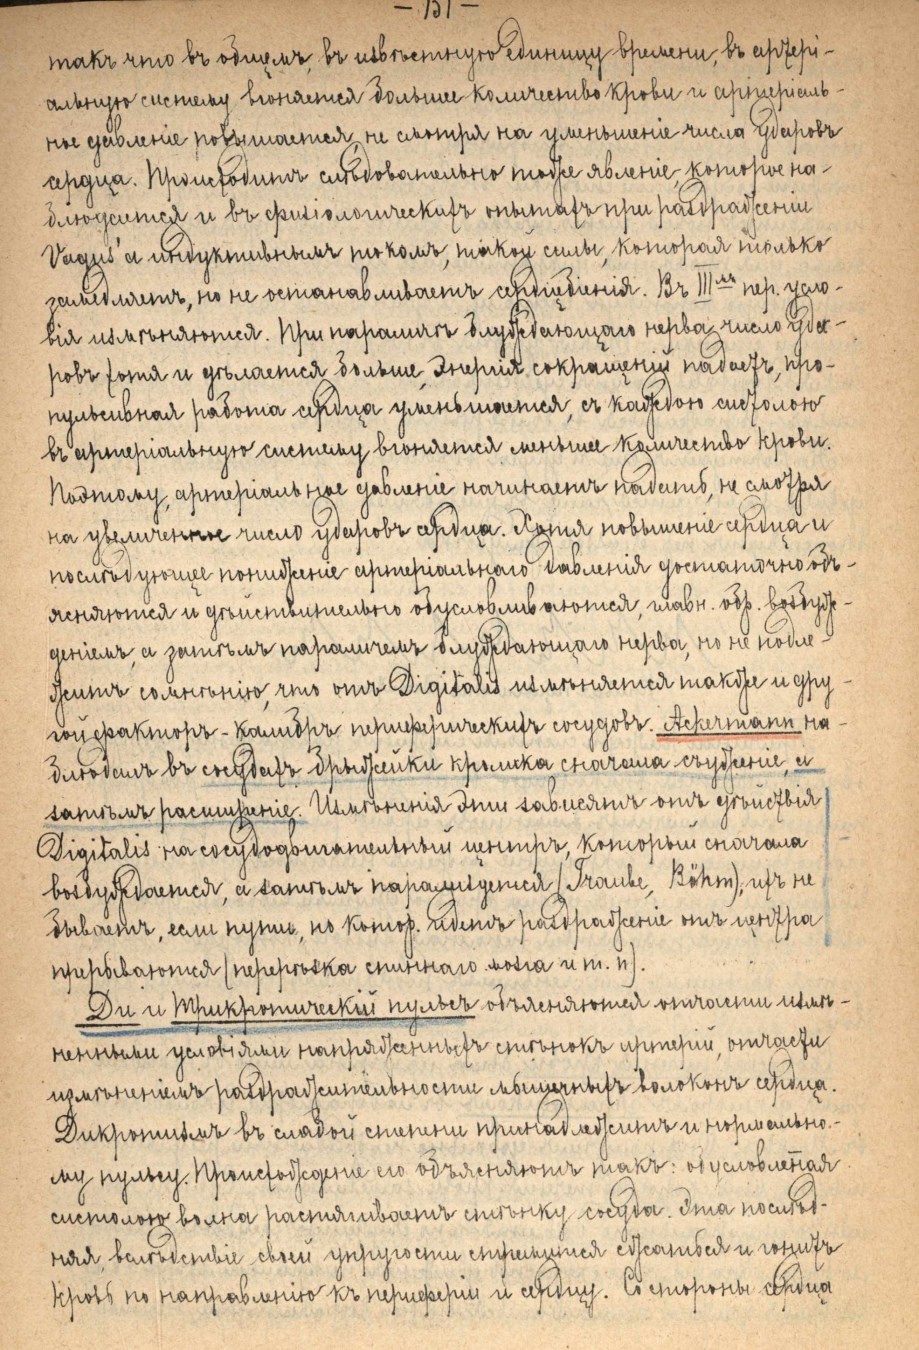 — 151 —
такъ что въ общемъ, въ извѣстную единицу времени, въ артері-
альную систему вгоняется большее количество крови и артеріаль-
ное давленіе повышается, не смотря на уменьшеніе числа ударовъ
сердца. Происходитъ слѣдовательно тоже явленіе, которое на-
блюдается и въ физіологическихъ опытахъ при раздраженіи
Vagus'а индуктивнымъ токомъ, такой силы, которая только
замедляетъ, но не останавливаетъ сердцебіенія. Въ III мъ пер. усло-
вія измѣняются. При параличѣ блуждающаго нерва число уда-
ровъ хотя и дѣлается больше, энергія сокращеній падаетъ, про-
пульсивная работа сердца уменьшается, съ каждою систолою
въ артеріальную систему вгоняется меньшее количество крови.
Поэтому, артеріальное давленіе начинаетъ падать, не смотря
на увеличенное число ударовъ сердца. Хотя повышеніе сердца и
послѣдующее пониженіе артеріальнаго давленія достаточно объ-
ясняются и дѣйствительно обусловливаются, главн. обр. возбуж-
деніемъ, а затѣмъ параличемъ блуждающаго нерва, но не подле-
житъ сомнѣнію, что отъ Digitalis измѣняется также и дру-
гой факторъ - калибръ периферическихъ сосудовъ. Ackermann на-
блюдалъ въ сосудахъ брыжейки кролика сначала съуженіе, а
затѣмъ расширеніе. Измѣненія эти зависятъ отъ дѣйствія
Digitalis на сосудодвигательный центръ, который сначала
возбуждается, а затѣмъ парализуется (Traube, Böhm), ихъ не
бываетъ, если пути, по котор. идетъ раздраженіе отъ центра
прерываются (перерѣзка спиннаго мозга и т. п).
Ди и Трикротическій пульсъ объясняются отчасти измѣ-
ненными условіями напряженныхъ стѣнокъ артерій, отчасти
измѣненіемъ раздражительности мышечныхъ волоконъ сердца.
Дикротизмъ въ слабой степени принадлежитъ и нормально-
му пульсу. Происхожденіе его объясняютъ такъ: обусловленная
систолою волна растягиваетъ стѣнку сосуда. Эта послѣд-
няя, вслѣдствіе своей упругости стремится сжаться и гонитъ
кровь по направленію къ периферіи и сердцу. Со стороны сердца